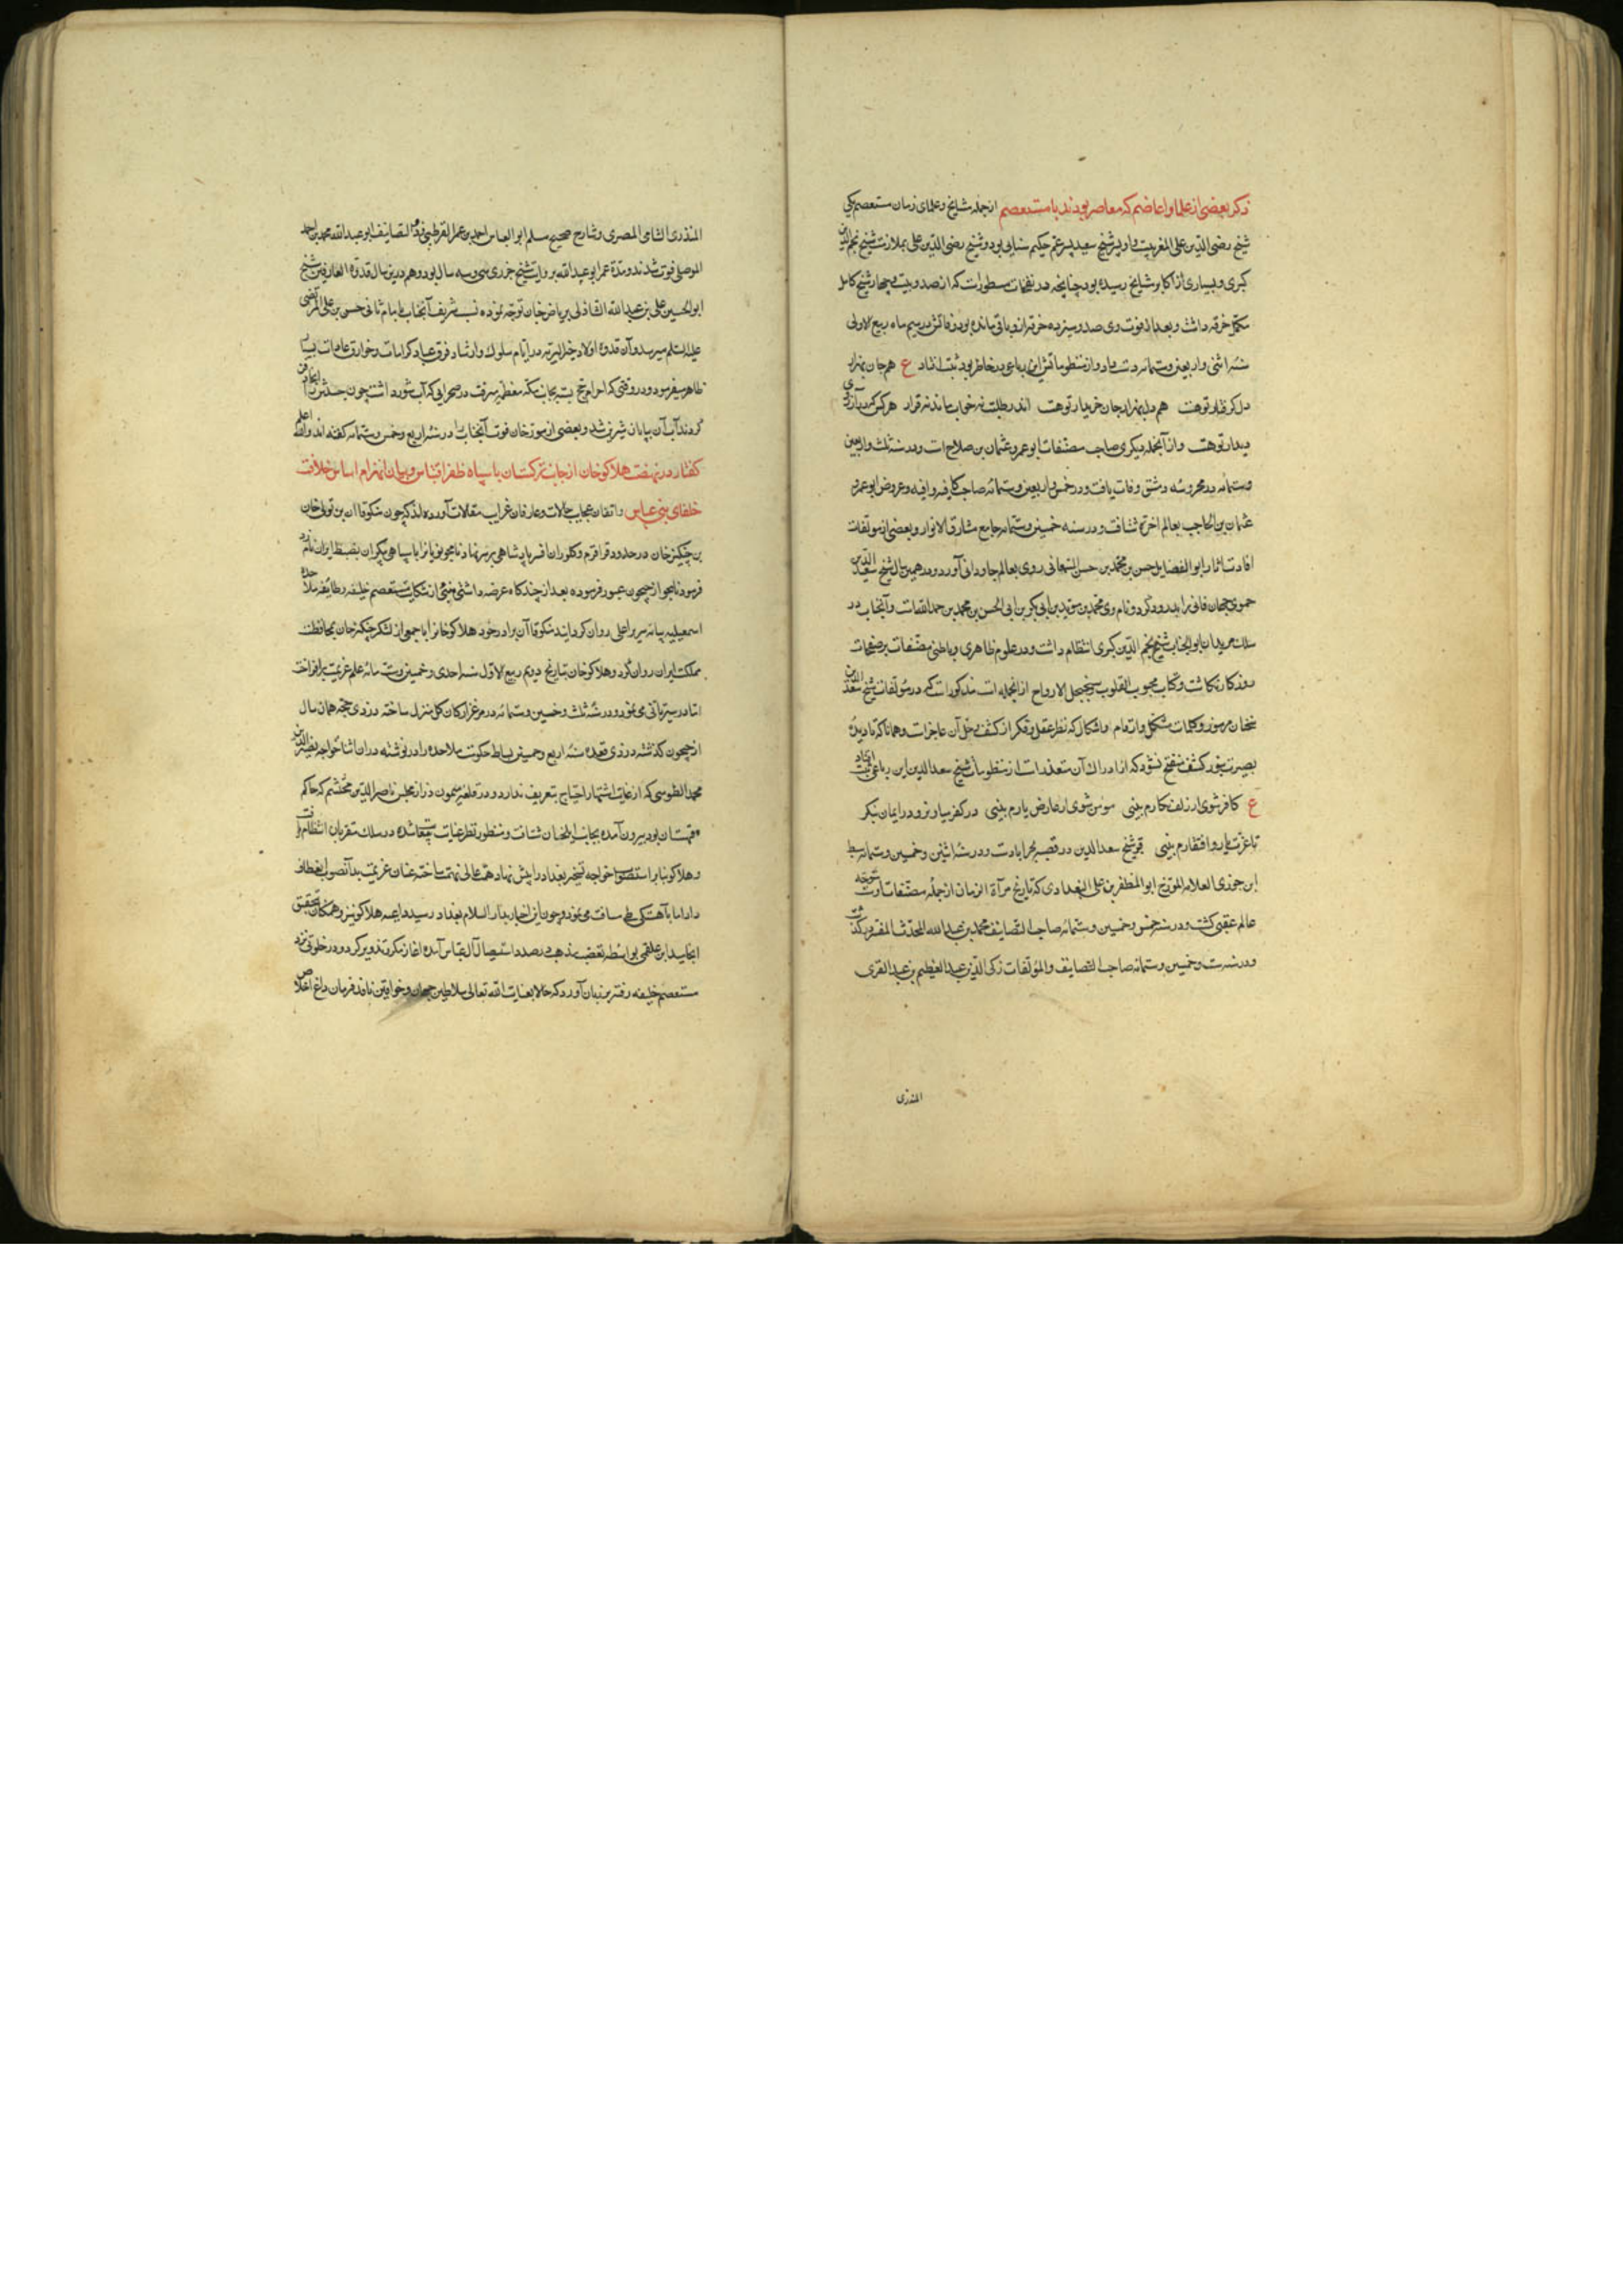 ذکر بعضی از علما و اعاظم که معاصر بودند با مستعصم از جمله مشایخ و علمای زمان مستعصم یکی
شیخ رضی الدین علی لالا و پدر شیخ سعید پسر عم حکیم سنایی بود و شیخ رضی الدین علی بملازمت شیخ نجم الدین
کبری و بسیاری از اکابر مشایخ رسیده بود چنانچه در نفحات مسطورست که از صد و بیست و چهار شیخ کامل
مکمل خرقه داشت و بعد از فوت وی صد و سیزده خرقه از وی باقی مانده بود وفاتش در سیم ماه ربیع الاولی
سنه اثنی و اربعین و ستمائه دست داد و از منظوماتش این رباعی در خاطر بود ثبت افتاد ع هم جان بهزار
دل گرفتار تو هست هم دل بهزار جان خریدار تو هست اندر طلبت نه خواب ماند نه قرار هر کس که در آرزوی
دیدار تو هست و از آنجمله دیگری صاحب مصنفات ابو عمرو عثمان بن صلاح است و در سنه ثلث و اربعین
و ستمائه در محروسه دمشق وفات یافت و در خمس و اربعین و ستمائه صاحب کافیه و وافیه و عروض ابو عمرو
عثمان بن الحاجب بعالم اخرة شتافت و در سنه خمسین و ستمائه جامع مشارق الانوار و بعضی از مولفات
افادت اثار ابو الفضایل حسن بن محمد بن حسن روی بعالم جاودانی آورد و در همین سال شیخ سعد الدین
حموی جهان فانی را بدرود کرد و نام وی محمد بن موید بن ابی بکر بن ابی الحسن بن محمد بن حمد الله است و آنجناب در
سلک مریدان ابو الجناب شیخ نجم الدین کبری انتظام داشت و در علوم ظاهری و باطنی مصنفات بر صفحات
روزگار نگاشت و کتاب محبوب القلوب و سجنجل الارواح از انجمله است مذکورست که در مولفات شیخ سعد الدین
سخنان مرموز و کلمات مشکل و ارقام و اشکال که نظر عقل و فکر از کشف و حل آن عاجزست و همانا که تا دیده
بصیرت بنور کشف منفتح نشود که از ادراک آن متعذرست از منظومات شیخ سعد الدین این رباعی ثبت افتاد
ع کافر شوی ار زلف نگارم بینی مومن شوی ار عارض یارم بینی در کفر میاویز و در ایمان منگر
تا عزت یار و افتقارم بینی قبر شیخ سعد الدین در قصبه بحراباد است و در سنه اثنین و خمسین و ستمائه سبط
ابن جوزی العلامه المورخ ابو المظفر بن علی البغدادی که تاریخ مرآة الزمان از جمله مصنفات اوست متوجه
عالم عقبی گشت و در سنه خمس و خمسین و ستمائه صاحب التصانیف محمد بن عبد الله المحدث المفسر درگذشت
و در سنه ست و خمسین و ستمائه صاحب التصانیف و المؤلفات زکی الدین عبد العظیم بن عبد القوی
المنذری
المنذری الشامی المصری و شارح صحیح مسلم ابو العباس احمد بن عمر القرطبی و التصانیف ابو عبد الله محمد بن احمد
الموصلی فوت شدند و مدة عمر ابو عبد الله بروایت شیخ جزری سی و سه سال بود و هم درین سال قدوة العارفین شیخ
ابو الحسین علی بن عبد الله الشاذلی بریاض جنان توجه نموده نسب شریف آنجناب بامام ثانی حسن بن علی المرتضی
علیه السلم میرسد و آن قدوه اولاد خیر البریه در ایام سلوک و ارشاد فرق عباد کرامات و خوارق عادات بسیار
ظاهر میفرمود و در وقتی که احرام حج بسته بجانب مکه معظمه میرفت در صحرایی که آب شور داشت چون جسدش را دفن
کردند آب آن بیابان شیرین شد و بعضی از مورخان فوت آنجناب را در سنه اربع و خمس و ستمائه گفته اند و الله اعلم
گفتار در نهضت هلاکو خان از جانب ترکستان با سپاه ظفر اقتباس و بیان انهزام اساس خلافت
خلفای بنی عباس واقفان عجایب حالات و عارفان غرایب مقالات آورده اند که چون منکوقاآن بن تولی خان
بن چنکیز خان در حدود قراقرم و کلوران افسر پادشاهی بر سر نهاد تایجو نویانرا با سپاهی بیکران بضبط ایران نامزد
فرمود تایجو از جیحون عبور فرموده بعد از چندگاه عرضه داشتی مبنی از شکایت مستعصم خلیفه و طایفه ملاحده
اسمعیلیه بپایه سریر اعلی روان گردانید منکوقاآن برادر خود هلاکو خانرا با جمعی از لشکر چنکیز خان بمحافظت
مملکت ایران روان کرد و هلاکو خان بتاریخ دویم ربیع الاول سنه احدی و خمسین و ستمائه علم عزیمت برافراخت
اما در سیر تانی می نمود و در سنه ثلث و خمسین و ستمائه در مرغزار کان کل منزل ساخته در ذی حجه همان سال
از جیحون گذشته در ذی قعده سنه اربع و خمسین بساط حکومت ملاحده را در نوشته در ان اثنا خواجه نصیر الدین
محمد الطوسی که از غایت اشتهار احتیاج بتعریف ندارد و در قلعه میمون دز از مجلس ناصر الدین محتشم که حاکم
قهستان بود بیرون آمده بجانب ایلخان شتافت و منظور نظر عنایت شده در سلک مقربان انتظام یافت
و هلاکو بنابر استصواب خواجه تسخیر بغداد را پیش نهاد همت عالی نهمت ساخته عنان عزیمت بدانصوب انعطاف
داد اما بآهستگی طی مسافت می نمود و چون این اخبار بدار السلام بغداد رسید و داعیه هلاکو نیز همگنان تحقق
انجامید ابن علقمی بواسطه تعصب مذهب در صدد استیصال آل عباس آمده اغاز مکر و تذویر کرد و در خلوتی نزد
مستعصم خلیفه رفته بر زبان آورد که حالا بعنایت الله تعالی سلاطین جهان و خواقین نافذ فرمان داغ اخلاص